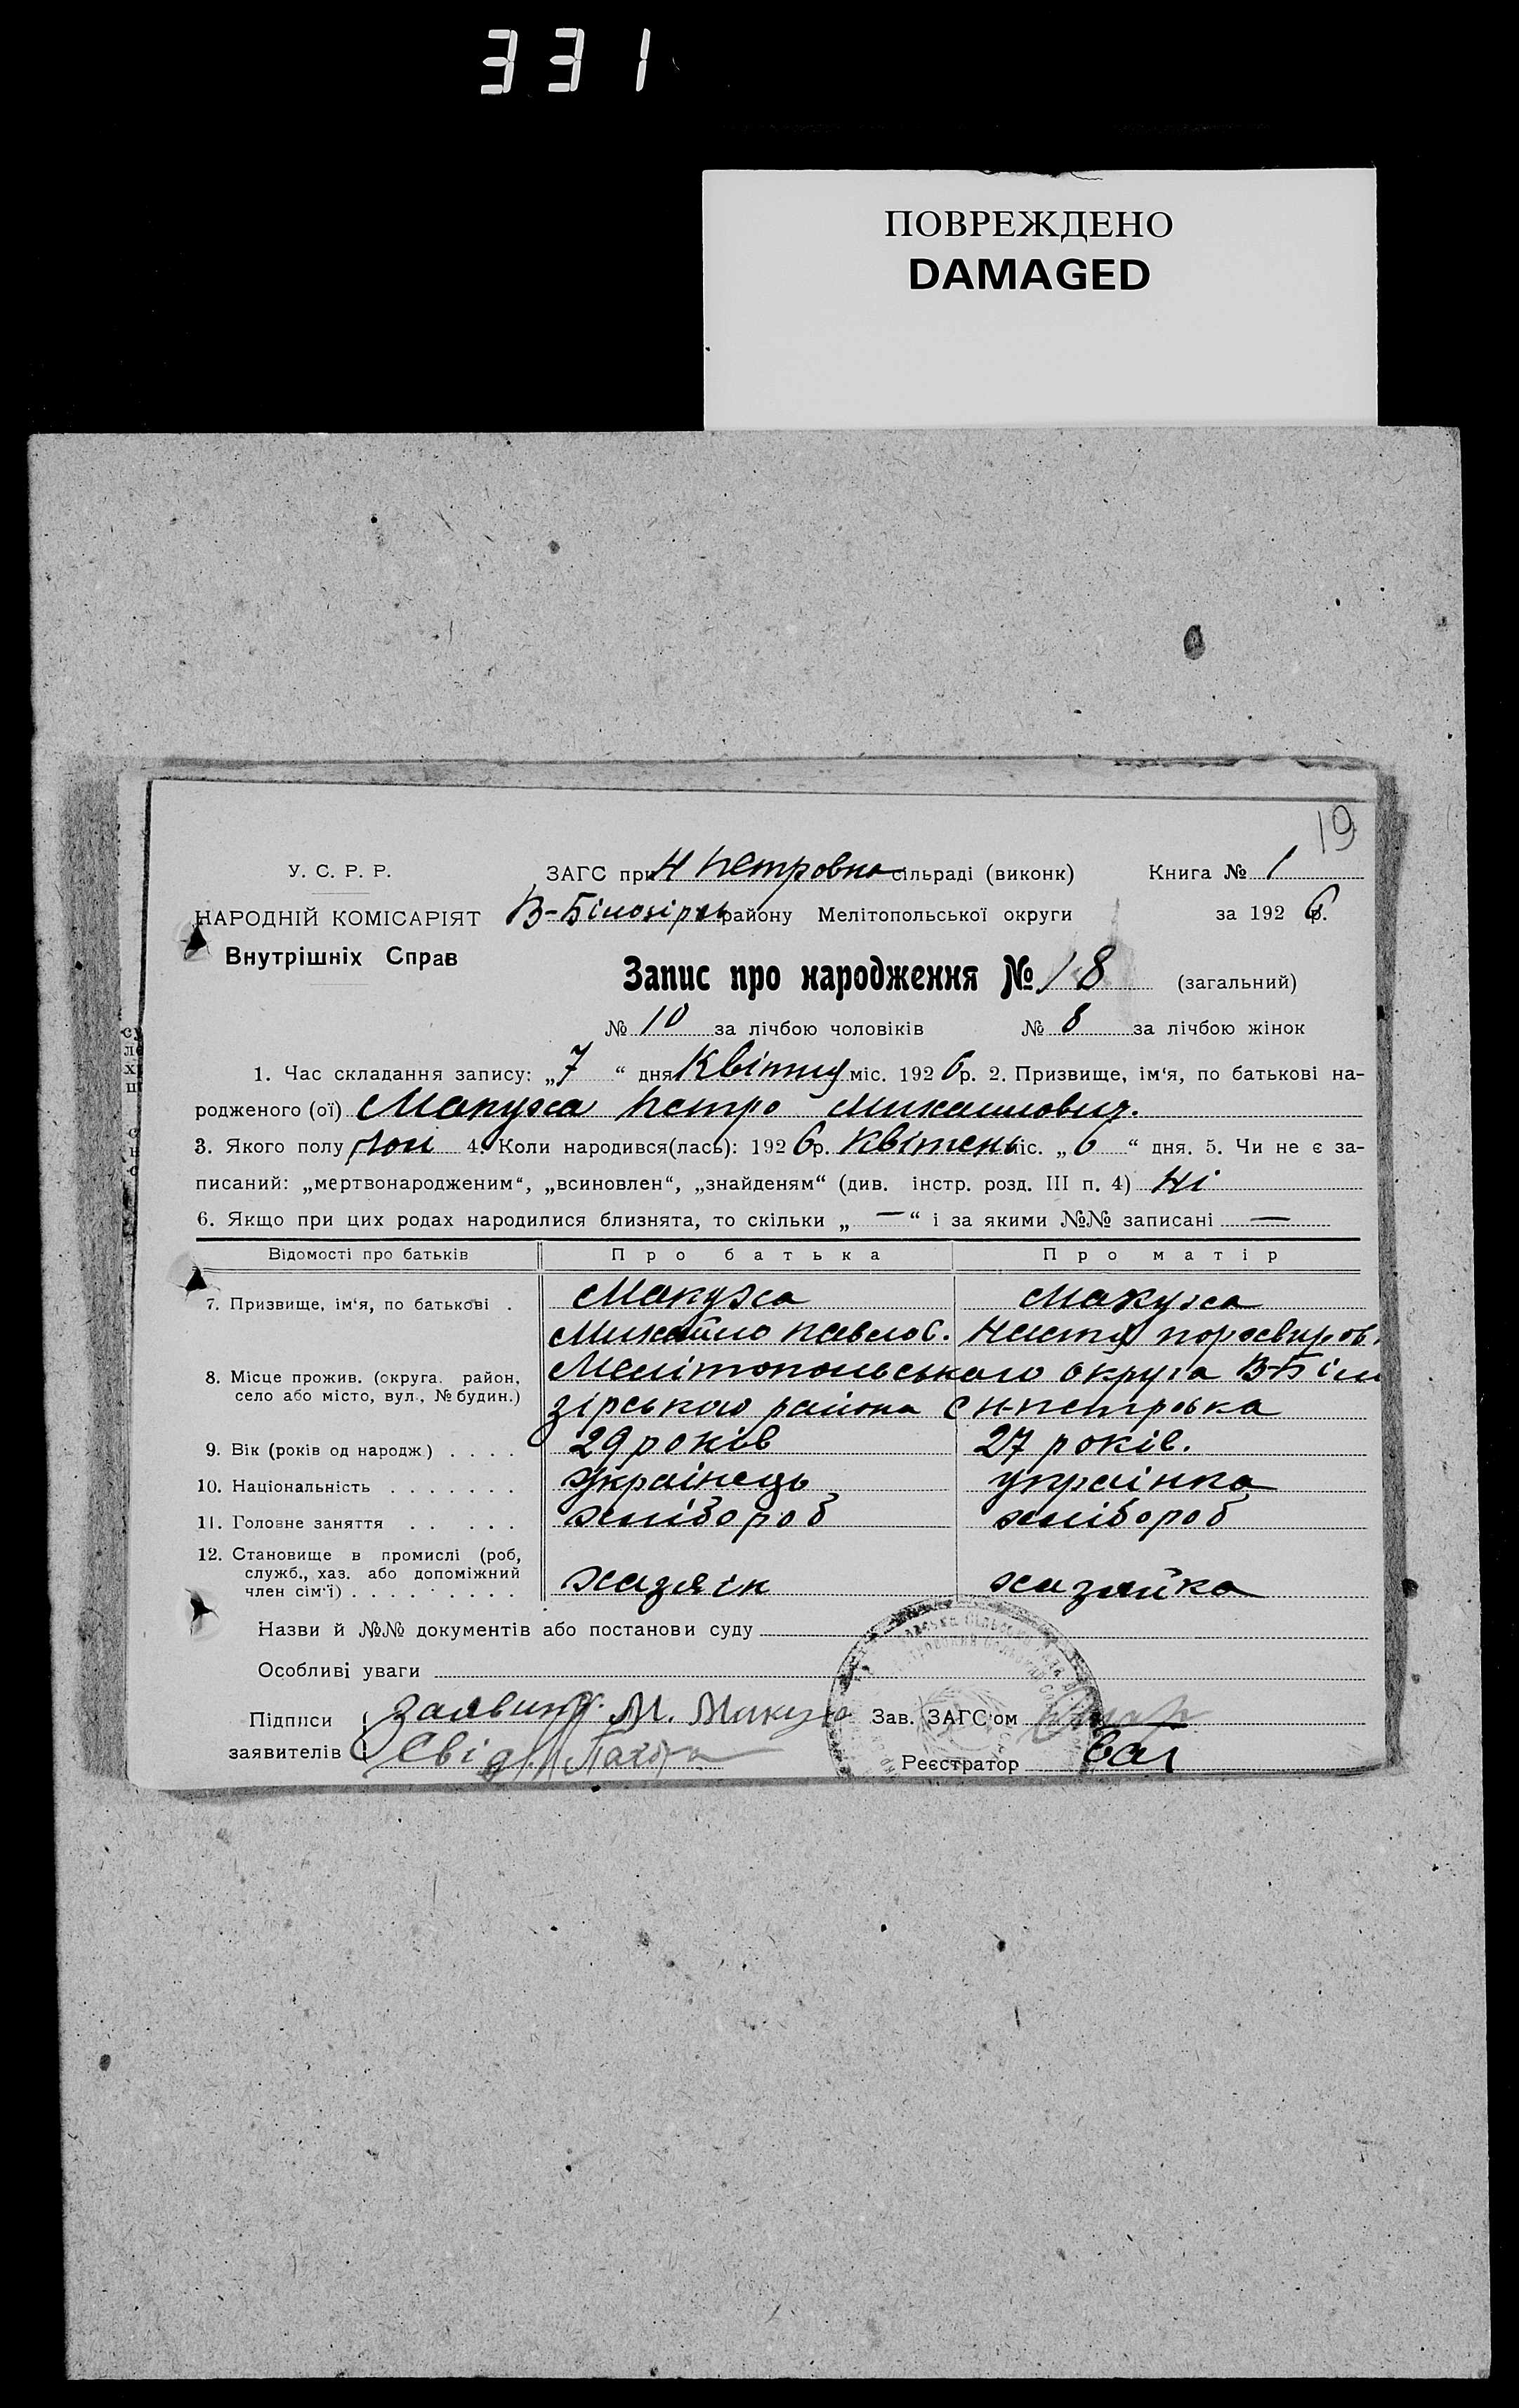 331
ПОВРЕЖДЕНО
DAMAGED
19
У. С. Р. Р. ЗАГС при Н Петровка сільраді (виконк) Книга № 1
НАРОДНІЙ КОМІСАРІЯТ В-Білозірськ району Мелітопольської округи за 1926 р.
Внутрішніх Справ
Запис про народження № 18 (загальний)
№ 10 за лічбою чоловіків № 8 за лічбою жінок
1. Час складання запису: „7“ дня Квітня міс. 1926 р. 2. Призвище, ім‘я, по батькові на-
родженого (ої) Макуха Петро Михайлович.
3. Якого полу чол 4. Коли народився(лась): 1926 р. Квітень міс. „6“ дня. 5. Чи не є за-
писаний: „мертвонародженим“, „всиновлен“, „знайденям“ (див. інстр. розд. III п. 4) Ні
6. Якщо при цих родах народилися близнята, то скільки „—“ і за якими №№ записані —
Відомості про батьків Про батька Про матір
7. Призвище, ім‘я, по батькові . Макуха Макуха
Михайло Павлов. Настя порхвиров.
8. Місце прожив. (округа, район, Мелітопольського округа В-Біл
село або місто, вул., № будин.) зірського района С Н-петровка
9. Вік (років од народж) . . . . 29 років 27 років.
10. Національність . . . . . . . Українець українка
11. Головне заняття . . . . . хлібороб хлібороб
12. Становище в промислі (роб,
служб., хаз. або допоміжний
член сім‘ї) . . . . . . . . . хазяін хазяйка
Назви й №№ документів або постанови суду
Особливі уваги
Підписи заявит. М. Макуха Зав. ЗАГС‘ом
заявителів Свід. Реєстратор